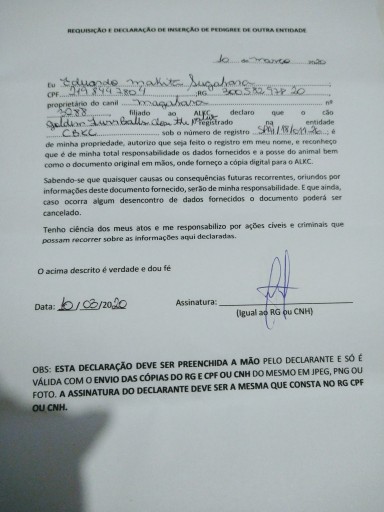 REQUISIÇÃO E DECLARAÇÃO DE INSERÇÃO DE PEDIGREE DE OUTRA ENTIDADE
10 de março 2020
Eu Eduardo Makita Sugahara
CPF RG
proprietário do canil Magahara nº
2088, filiado ao ALKC declaro que o cão
golden registrado na entidade
CBKC sob o número de registro é
de minha propriedade, autorizo que seja feito o registro em meu nome, e reconheço
que é de minha total responsabilidade os dados fornecidos e a posse do animal bem
como o documento original em mãos, onde forneço a cópia digital para o ALKC.
Sabendo-se que quaisquer causas ou consequências futuras recorrentes, oriundos por
informações deste documento fornecido, serão de minha responsabilidade. E que ainda,
caso ocorra algum desencontro de dados fornecidos o documento poderá ser
cancelado.
Tenho ciência dos meus atos e me responsabilizo por ações cíveis e criminais que
possam recorrer sobre as informações aqui declaradas.
O acima descrito é verdade e dou fé
Data: 10/03/2020 Assinatura:
(Igual ao RG ou CNH)
OBS: ESTA DECLARAÇÃO DEVE SER PREENCHIDA A MÃO PELO DECLARANTE E SÓ É
VÁLIDA COM O ENVIO DAS CÓPIAS DO RG E CPF OU CNH DO MESMO EM JPEG, PNG OU
FOTO. A ASSINATURA DO DECLARANTE DEVE SER A MESMA QUE CONSTA NO RG CPF
OU CNH.